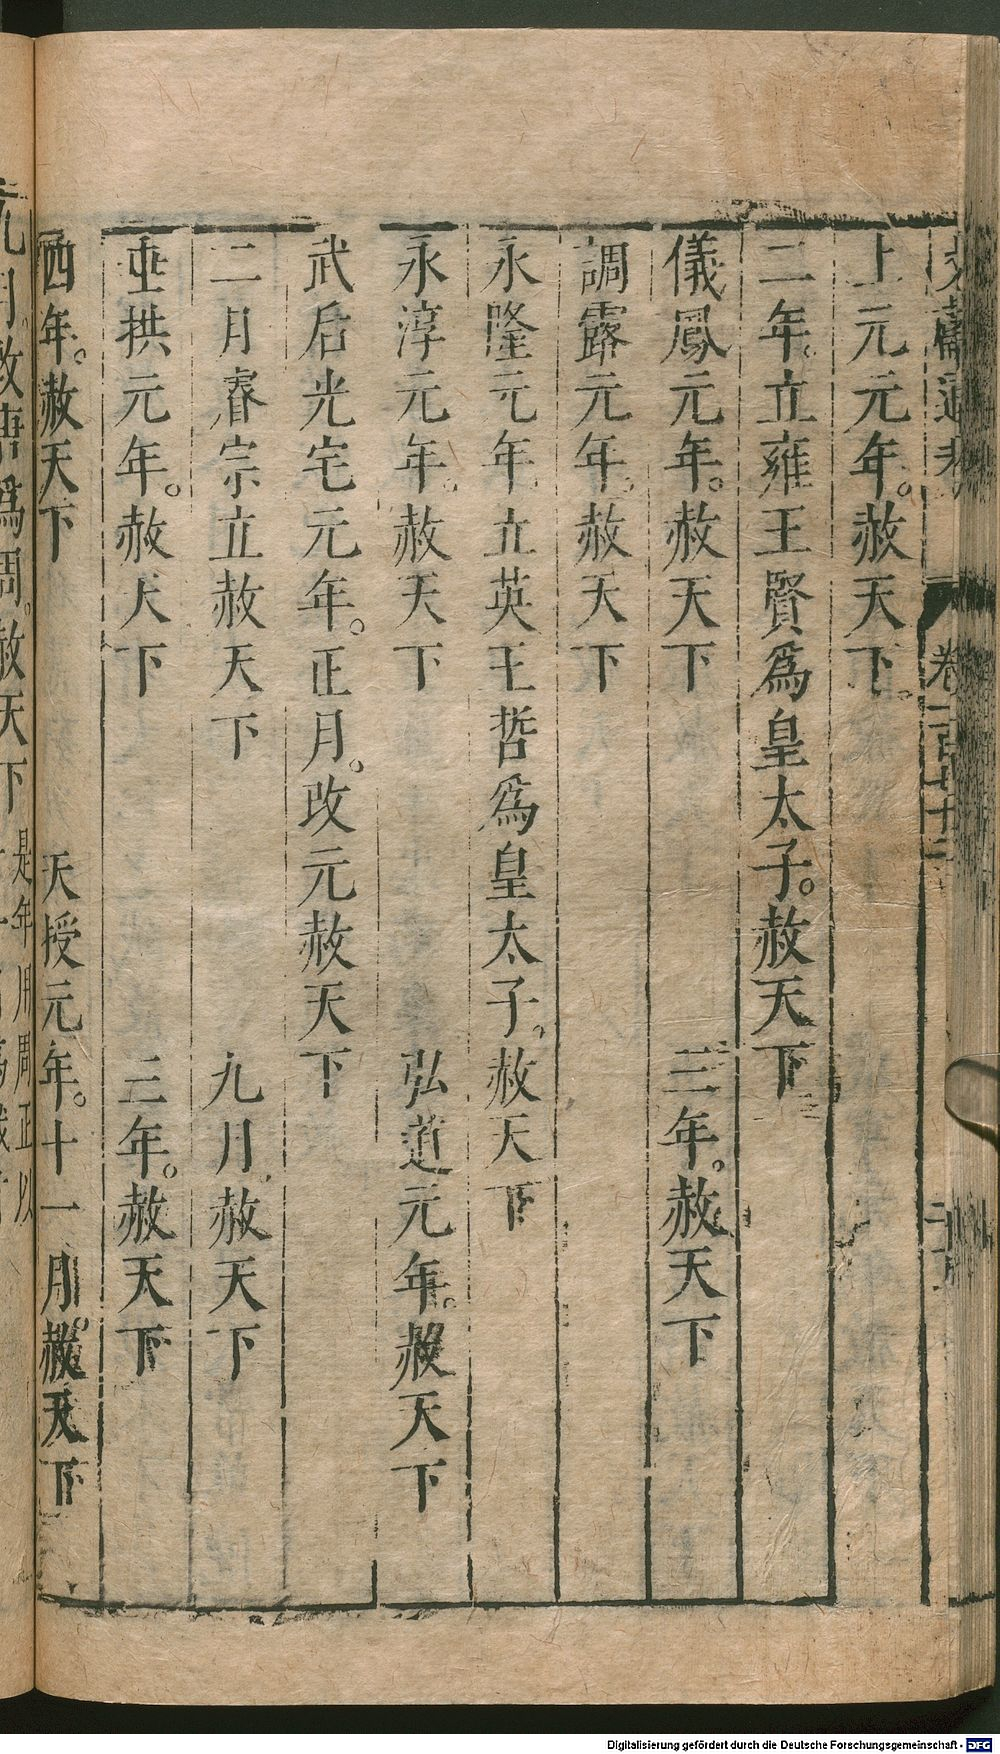 文獻通考 卷一百七十三
上元元年。赦天下。
二年。立雍王賢爲皇太子。赦天下
儀鳳元年。赦天下 三年。赦天下
調露元年。赦天下
永隆元年立英王哲爲皇太子。赦天下
永淳元年。赦天下 弘道元年。赦天下
武后光宅元年。正月。改元赦天下
二月睿宗立赦天下 九月赦天下
垂拱元年。赦天下 三年。赦天下
四年。赦天下 天授元年。十一月。赦天下
九月。改唐爲周。赦天下 是年用周正以
Digitalisierung gefördert durch die Deutsche Forschungsgemeinschaft - DFG